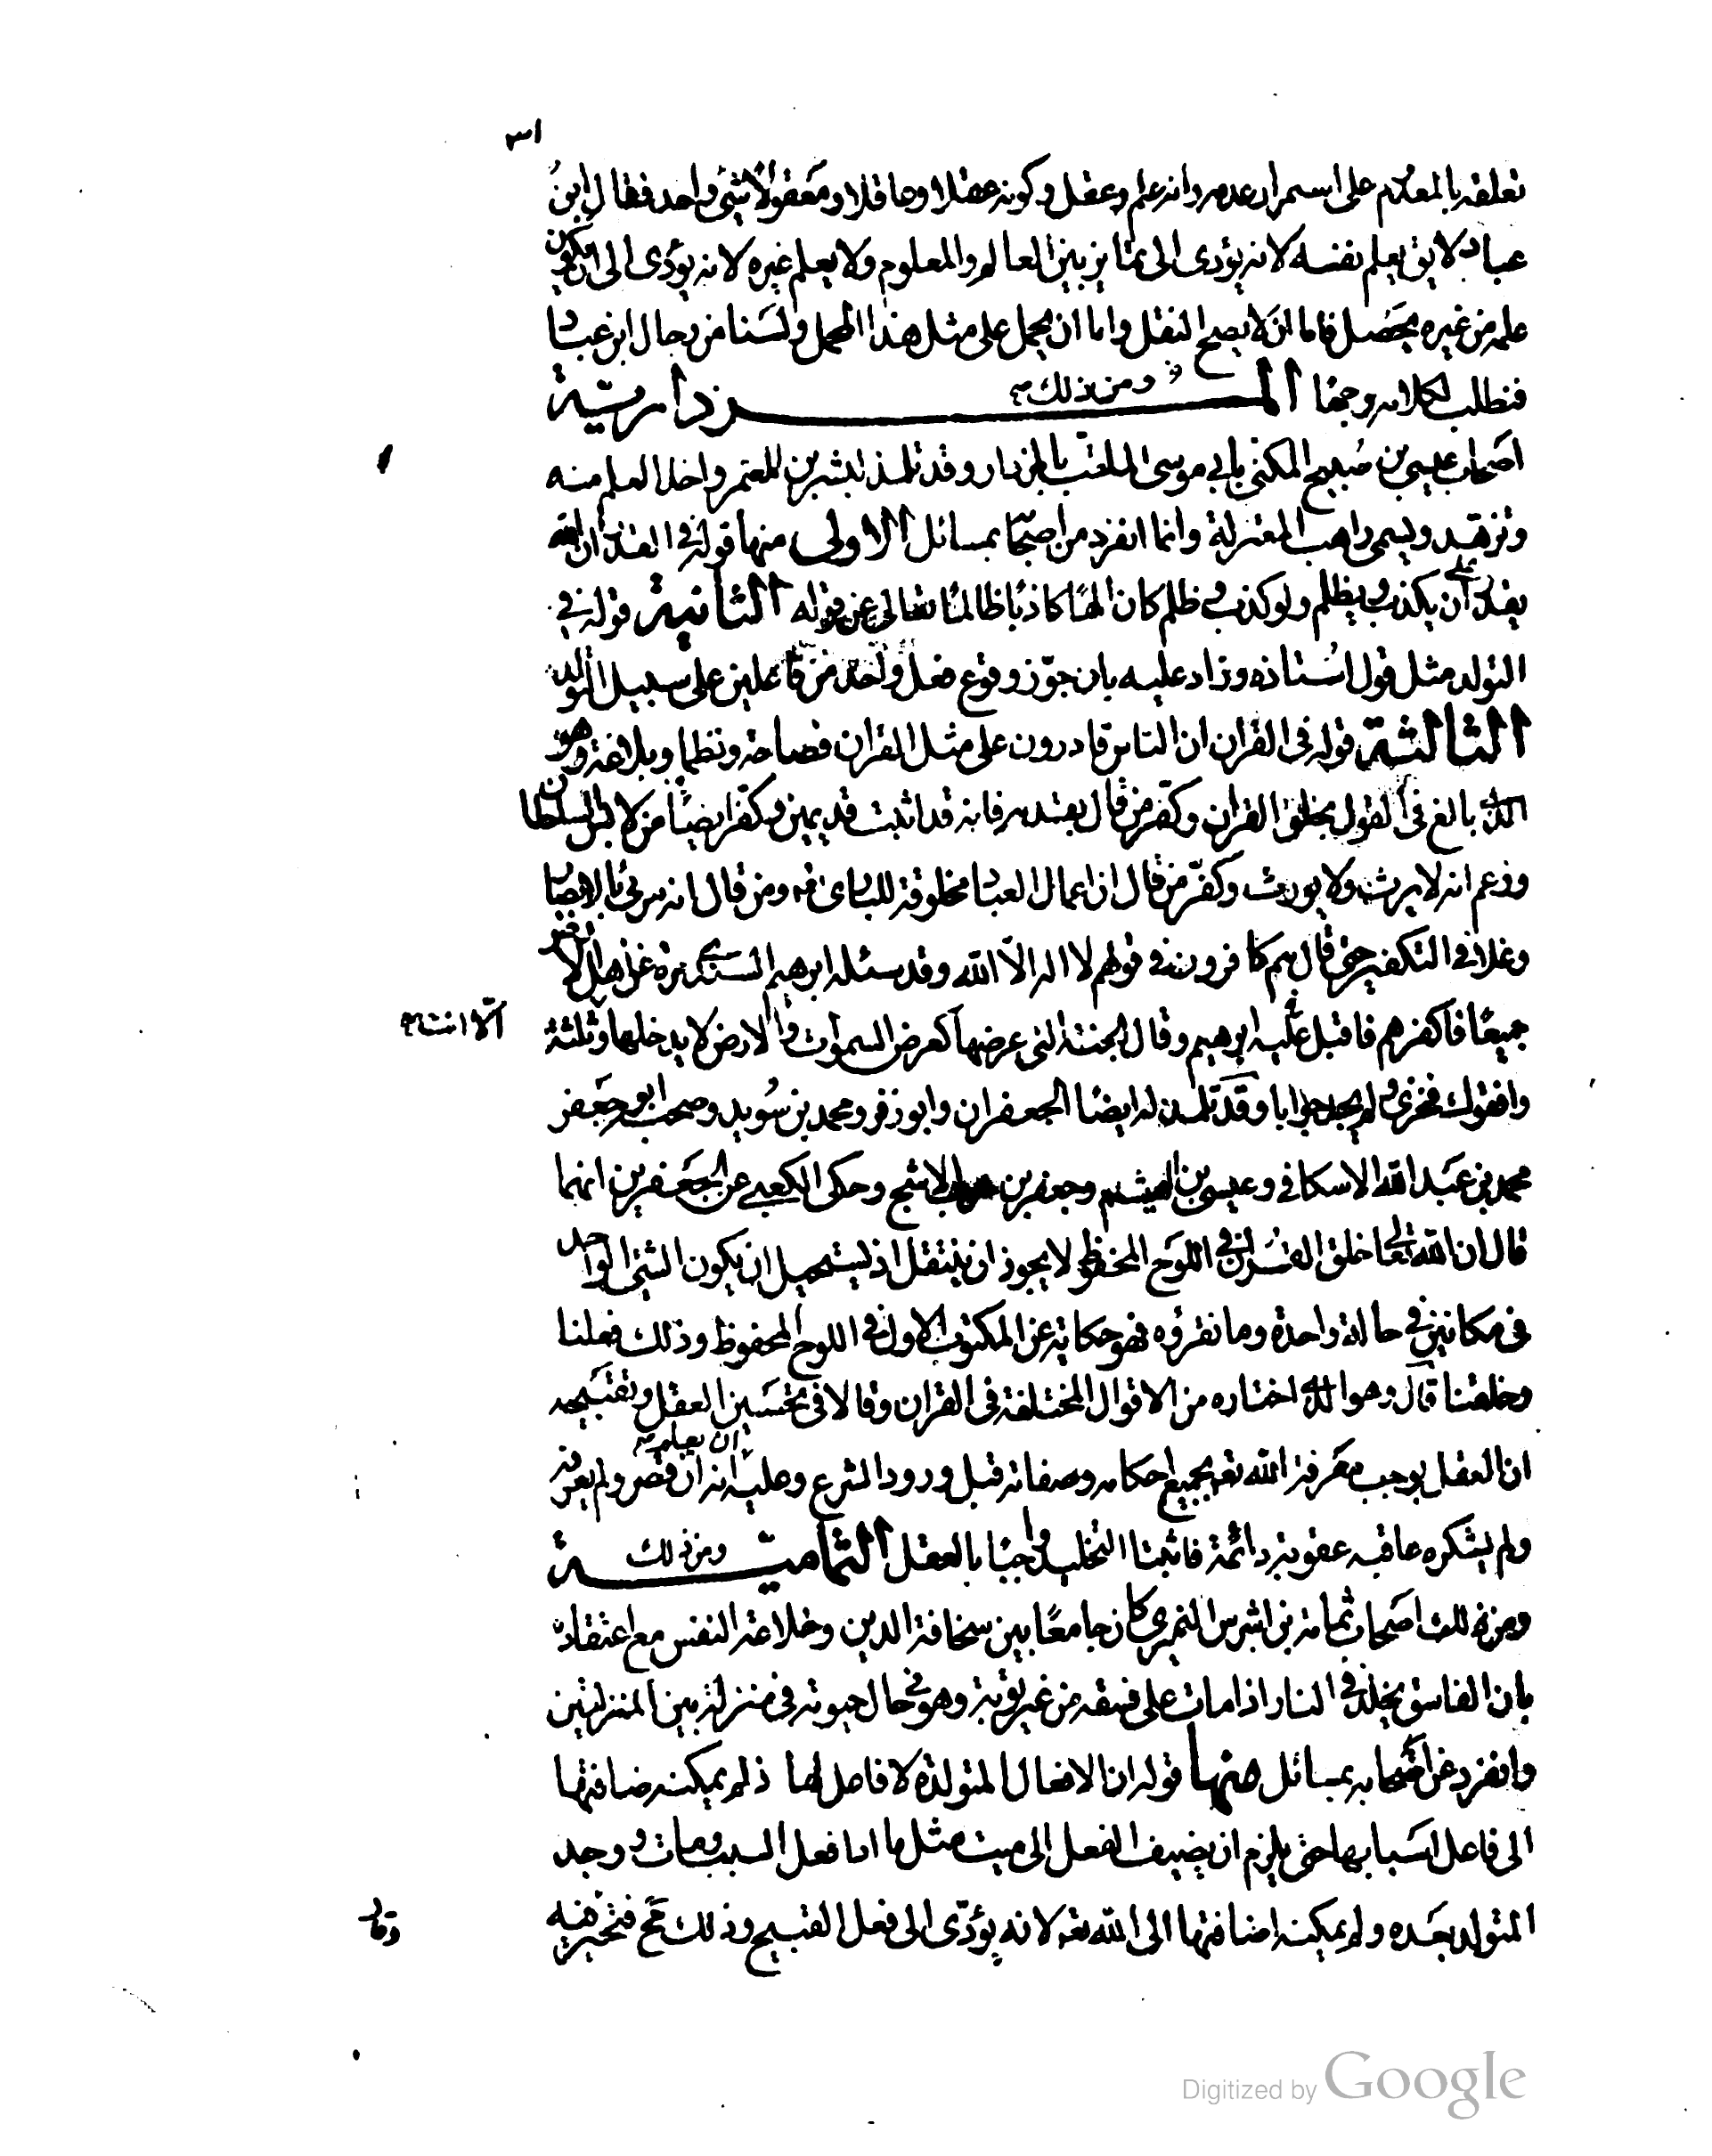 ٣١
تعلقه بالمعدوم على استمرار عدمه وانه علم وعقل وكونه عقلا وعاقلا ومعقولا شئ واحد فقال ابن
عباد لا يق يعلم نفسه لانه يؤدى الى تمايز بين العالم والمعلوم ولا يعلم غيره لانه يؤدى الى ان يكون
علمه من غيره يحصل فاما ان لا يصح النقل واما ان يحمل على مثل هذا المحمل ولسنا من رجال ابن عباد
فنطلب لكلامه وجها ومن ذلك المزدارية
اصحاب عيسى بن صبيح المكنى بابى موسى الملقب بالمزدار وقد تلمذ لبشر بن المعتمر واخذ العلم منه
وتزهد ويسمى راهب المعتزلة وانما انفرد من اصحابه بمسائل الاولى منها قوله فى القدر ان الله
يقدر على ان يكذب ويظلم ولو كذب وظلم كان الها كاذبا ظالما تعالى عن قوله الثانية قوله فى
التولد مثل قول استاذه وزاد عليه بان جوز وقوع فعل واحد من فاعلين على سبيل التولد
الثالثة قوله فى القران ان الناس قادرون على مثل القران فصاحة ونظما وبلاغة وهو
الذى بالغ فى القول بخلق القران وكفر من قال بقدمه فانه قد اثبت قديمين وكفر ايضا من لابس السلطان
وزعم انه لا يرث ولا يورث وكفر من قال ان اعمال العباد مخلوقة للبارئ تع ومن قال انه يرئ بالابصار
وغلا فى التكفير حتى قال هم كافرون فى قولهم لا اله الا الله وقد سئله ابرهيم السندى مرة عن اهل الارض
جميعا فاكفرهم فاقبل عليه ابرهيم وقال الجنة التى عرضها كعرض السموات والارض لا يدخلها وثلثة
الا انت
وافقوك فخزى ولم يجد جوابا وقد تلمذ له ايضا الجعفران وابو زفر ومحمد بن سويد وصحب ابو جعفر
محمد بن عبد الله الاسكافى وعيسى بن الهيثم وجعفر بن حرب الاشج وحكى الكعبى عن الجعفرين انهما
قالا ان الله تعالى خلق القران فى اللوح المحفوظ لا يجوز ان ينتقل اذ يستحيل ان يكون الشئ الواحد
فى مكانين فى حالة واحدة وما نقرؤه فهو حكاية عن المكتوب الاول فى اللوح المحفوظ وذلك فعلنا
وخلقنا قال وهو الذى اختاره من الاقوال المختلفة فى القران وقالا فى تحسين العقل وتقبيحه
ان العقل يوجب معرفة الله تع بجميع احكامه وصفاته قبل ورود الشرع وعليه ان يعلم انه ان قصر ولم يعرفه
ولم يشكره عاقبه عقوبة دائمة فاثبتا التخليد واجبا بالعقل ومن ذلك الثمامية
ومن ذلك اصحاب ثمامة بن اشرس النميرى كان جامعا بين سخافة الدين وخلاعة النفس مع اعتقاده
بان الفاسق يخلد فى النار اذا مات على فسقه من غير توبة وهو فى حال حيوته فى منزلة بين المنزلتين
وانفرد عن اصحابه بمسائل منها قوله ان الافعال المتولدة لا فاعل لها اذ لم يمكنه اضافتها
الى فاعل اسبابها حتى يلزم ان يضيف الفعل الى ميت مثل ما اذا فعل السبب ومات ووجد
المتولد بعده ولم يمكنه اضافتها الى الله تع لانه يؤدى الى فعل القبيح وذلك مح فتحير فيه
وقال
Digitized by Google